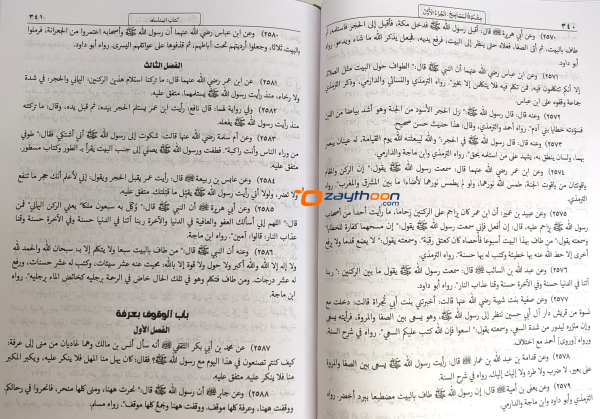 ٣٤٠
مشكاة المصابيح - الجزء الأول
٢٥٧٠ - وعن أبي هريرة قال: أقبل رسول الله ﷺ فدخل مكة، فأقبل إلى الحجر فاستلمه، ثم
طاف بالبيت، ثم أتى الصفا، فعلاه حتى ينظر إلى البيت، فرفع يديه، فجعل يذكر الله ما شاء ويدعو. رواه
أبو داود.
٢٥٧١ - وعن ابن عباس رضي الله عنهما أن النبي ﷺ قال: "الطواف حول البيت مثل الصلاة
إلا أنكم تتكلمون فيه، فمن تكلم فيه فلا يتكلمن إلا بخير". رواه الترمذي والنسائي والدارمي، وذكر الترمذي
جماعة وقفوه على ابن عباس.
٢٥٧٢ - وعنه قال: قال رسول الله ﷺ: "نزل الحجر الأسود من الجنة وهو أشد بياضا من اللبن
فسودته خطايا بني آدم". رواه أحمد والترمذي، وقال: هذا حديث حسن صحيح.
٢٥٧٣ - وعنه قال: قال رسول الله ﷺ في الحجر: "والله ليبعثنه الله يوم القيامة، له عينان يبصر
بهما، ولسان ينطق به، يشهد على من استلمه بحق". رواه الترمذي وابن ماجة والدارمي.
٢٥٧٤ - وعن ابن عمر رضي الله عنهما قال: سمعت رسول الله ﷺ يقول: "إن الركن والمقام
ياقوتتان من ياقوت الجنة، طمس الله نورهما، ولو لم يطمس نورهما لأضاءا ما بين المشرق والمغرب". رواه
الترمذي.
٢٥٧٥ - وعن عبيد بن عمير: أن ابن عمر كان يزاحم على الركنين زحاما، ما رأيت أحدا من أصحاب
رسول الله ﷺ يزاحم عليه، قال: إن أفعل فإني سمعت رسول الله ﷺ يقول: "إن مسحهما كفارة للخطايا"
وسمعته يقول: "من طاف بهذا البيت أسبوعا فأحصاه كان كعتق رقبة". وسمعته يقول: "لا يضع قدما ولا يرفع
أخرى إلا حط الله عنه بها خطيئة وكتب له بها حسنة". رواه الترمذي.
٢٥٧٦ - وعن عبد الله بن السائب قال: سمعت رسول الله ﷺ يقول ما بين الركنين: "ربنا
آتنا في الدنيا حسنة وفي الآخرة حسنة وقنا عذاب النار". رواه أبو داود.
٢٥٧٧ - وعن صفية بنت شيبة رضي الله عنها قالت: أخبرتني بنت أبي تجراة قالت: دخلت مع
نسوة من قريش دار آل أبي حسين ننظر إلى رسول الله ﷺ، وهو يسعى بين الصفا والمروة، فرأيته يسعى
وإن مئزره ليدور من شدة السعي، وسمعته يقول: "اسعوا فإن الله كتب عليكم السعي". رواه في شرح السنة.
ورواه [وروى] أحمد مع اختلاف.
٢٥٧٨ - وعن قدامة بن عبد الله بن عمار قال: رأيت رسول الله ﷺ يسعى بين الصفا والمروة
على بعير، لا ضرب ولا طرد ولا إليك إليك. رواه في شرح السنة.
٢٥٧٩ - وعن يعلى بن أمية قال: إن رسول الله ﷺ طاف بالبيت مضطبعا ببرد أخضر. رواه
الترمذي وأبو داود وابن ماجة والدارمي.
كتاب المناسك
٣٤١
٢٥٨٠ - وعن ابن عباس رضي الله عنهما أن رسول الله ﷺ وأصحابه اعتمروا من الجعرانة، فرملوا
بالبيت ثلاثا، وجعلوا أرديتهم تحت آباطهم، ثم قذفوها على عواتقهم اليسرى. رواه أبو داود.
الفصل الثالث
٢٥٨١ - عن ابن عمر رضي الله عنهما قال: ما تركنا استلام هذين الركنين: اليماني والحجر، في شدة
ولا رخاء، منذ رأيت رسول الله ﷺ يستلمهما. متفق عليه.
٢٥٨٢ - وفي رواية لهما: قال نافع: رأيت ابن عمر يستلم الحجر بيده، ثم قبل يده، وقال: ما تركته
منذ رأيت رسول الله ﷺ يفعله.
٢٥٨٣ - وعن أم سلمة رضي الله عنها قالت: شكوت إلى رسول الله ﷺ أني أشتكي فقال: "طوفي
من وراء الناس وأنت راكبة". فطفت ورسول الله ﷺ يصلي إلى جنب البيت يقرأ بـ الطور وكتاب مسطور.
متفق عليه.
٢٥٨٤ - وعن عابس بن ربيعة قال: رأيت عمر يقبل الحجر ويقول: إني لأعلم أنك حجر ما تنفع
ولا تضر، ولولا أني رأيت رسول الله ﷺ يقبّل ما قبلتك. متفق عليه.
٢٥٨٥ - وعن أبي هريرة أن النبي ﷺ قال: "وُكّل به سبعون ملكا" يعني الركن اليماني "فمن
قال: اللهم إني أسألك العفو والعافية في الدنيا والآخرة ربنا آتنا في الدنيا حسنة وفي الآخرة حسنة وقنا
عذاب النار: قالوا: آمين". رواه ابن ماجة.
٢٥٨٦ - وعنه أن النبي ﷺ قال: "من طاف بالبيت سبعا ولا يتكلم إلا بـ: سبحان الله والحمد لله
ولا إله إلا الله والله أكبر ولا حول ولا قوة إلا بالله، محيت عنه عشر سيئات، وكتب له عشر حسنات، ورفع
له عشر درجات. ومن طاف فتكلم وهو في تلك الحال خاض في الرحمة برجليه كخائض الماء برجليه". رواه
ابن ماجة.
باب الوقوف بعرفة
الفصل الأول
٢٥٨٧ - عن محمد بن أبي بكر الثقفي أنه سأل أنس بن مالك وهما غاديان من منى إلى عرفة:
كيف كنتم تصنعون في هذا اليوم مع رسول الله ﷺ؟ فقال: كان يهل منا المهل فلا ينكر عليه، ويكبر المكبر
منا فلا ينكر عليه. متفق عليه.
٢٥٨٨ - وعن جابر أن رسول الله ﷺ قال: "نحرت ههنا، ومنى كلها منحر، فانحروا في رحالكم.
ووقفت ههنا، وعرفة كلها موقف. ووقفت ههنا وجمع كلها موقف". رواه مسلم.
zaythoon
.com